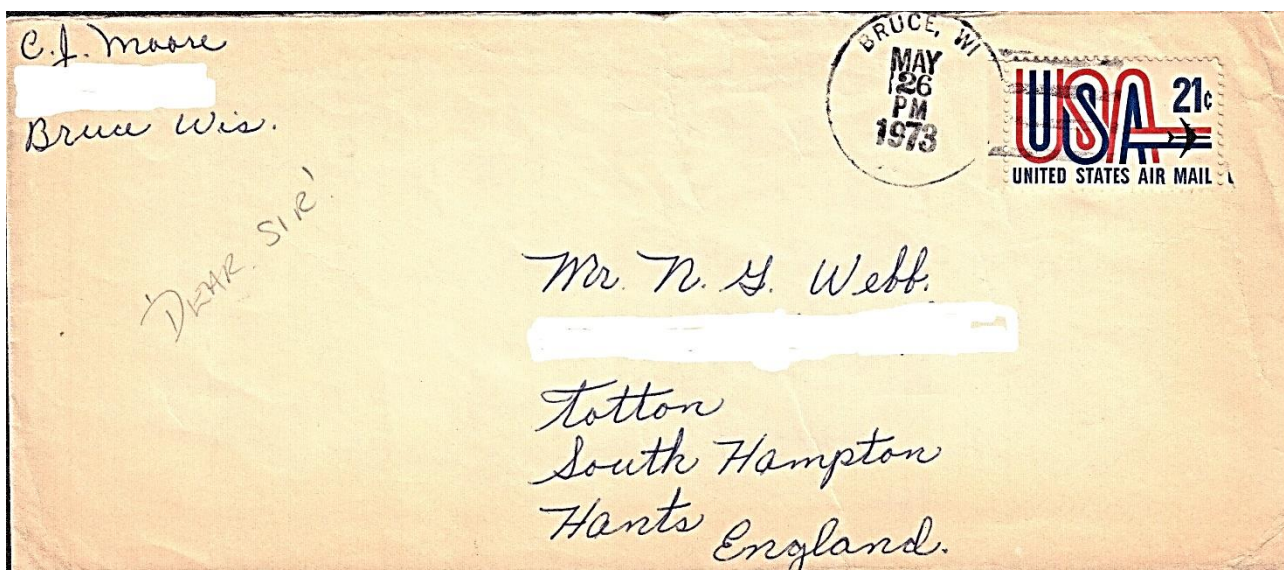 C. J. Moore
Bruce Wis.
BRUCE, WI
MAY
26
PM
1973
USA 21¢
UNITED STATES AIR MAIL
'DEAR SIR'
Mr. N. G. Webb.
Totton
South Hampton
Hants England.